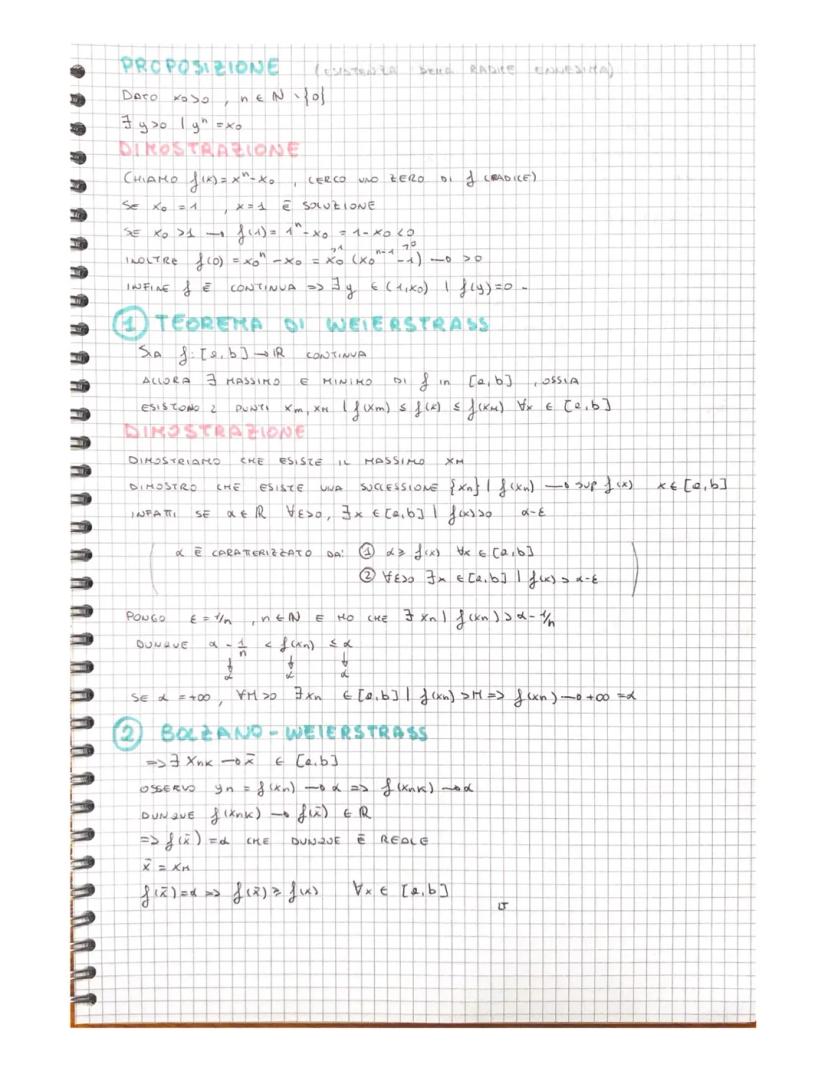 PROPOSIZIONE (ESISTENZA DELLA RADICE ENNESIMA)
DATO x₀>0 , n ∈ ℕ \ {0}
∃ y>0 | yⁿ = x₀
DIMOSTRAZIONE
CHIAMO f(x) = xⁿ - x₀ , CERCO UNO ZERO DI f (RADICE)
SE x₀ = 1 , x = 1 È SOLUZIONE
SE x₀ > 1 → f(1) = 1ⁿ - x₀ = 1 - x₀ < 0
INOLTRE f(0) = x₀ⁿ - x₀ = x₀ (x₀ⁿ⁻¹ - 1) → >0
>1 >0
INFINE f È CONTINUA => ∃ y ∈ (1, x₀) | f(y) = 0 -
① TEOREMA DI WEIERSTRASS
SIA f: [a,b] → ℝ CONTINUA
ALLORA ∃ MASSIMO E MINIMO DI f in [a,b] , OSSIA
ESISTONO 2 PUNTI xm, xM | f(xm) ≤ f(x) ≤ f(xM) ∀x ∈ [a,b]
DIMOSTRAZIONE
DIMOSTRIAMO CHE ESISTE IL MASSIMO xM
DIMOSTRO CHE ESISTE UNA SUCCESSIONE {xn} | f(xn) → sup f(x) x ∈ [a,b]
INFATTI SE α ∈ ℝ ∀ε>0, ∃x ∈ [a,b] | f(x)>0 α-ε
( α È CARATTERIZZATO DA: ① α ≥ f(x) ∀x ∈ [a,b]
② ∀ε>0 ∃x ∈ [a,b] | f(x) > α-ε )
PONGO ε = 1/n , n ∈ ℕ E HO CHE ∃ xn | f(xn) > α - 1/n
DUNQUE α - 1/n < f(xn) ≤ α
↓ ↓ ↓
α α α
SE α = +∞ , ∀M>0 ∃xn ∈ [a,b] | f(xn) > M => f(xn) → +∞ = α
② BOLZANO - WEIERSTRASS
=> ∃ xnk → x̄ ∈ [a,b]
OSSERVO yn = f(xn) → α => f(xnk) → α
DUNQUE f(xnk) → f(x̄) ∈ ℝ
=> f(x̄) = α CHE DUNQUE È REALE
x̄ = xM
f(x̄) = α => f(x̄) ≥ f(x) ∀x ∈ [a,b]